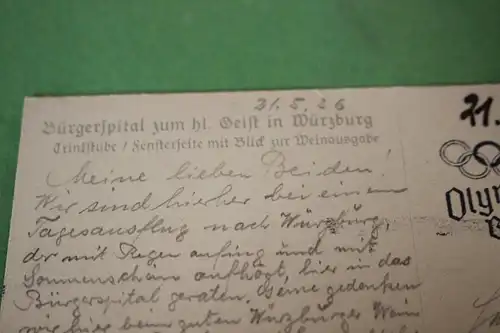 21. 5. 26
Bürgerspital zum hl. Geist in Würzburg
Trinkstube / Fensterseite mit Blick zur Weinausgabe
Meine lieben Beiden!
Wir sind hierher bei einem
Tagesausflug nach Würzburg,
der mit Regen anfing und mit
Sonnenschein aufhört, hier in das
Bürgerspital geraten. Gerne gedenken
wir hier beim guten Würzburger Wein
21.
Olym